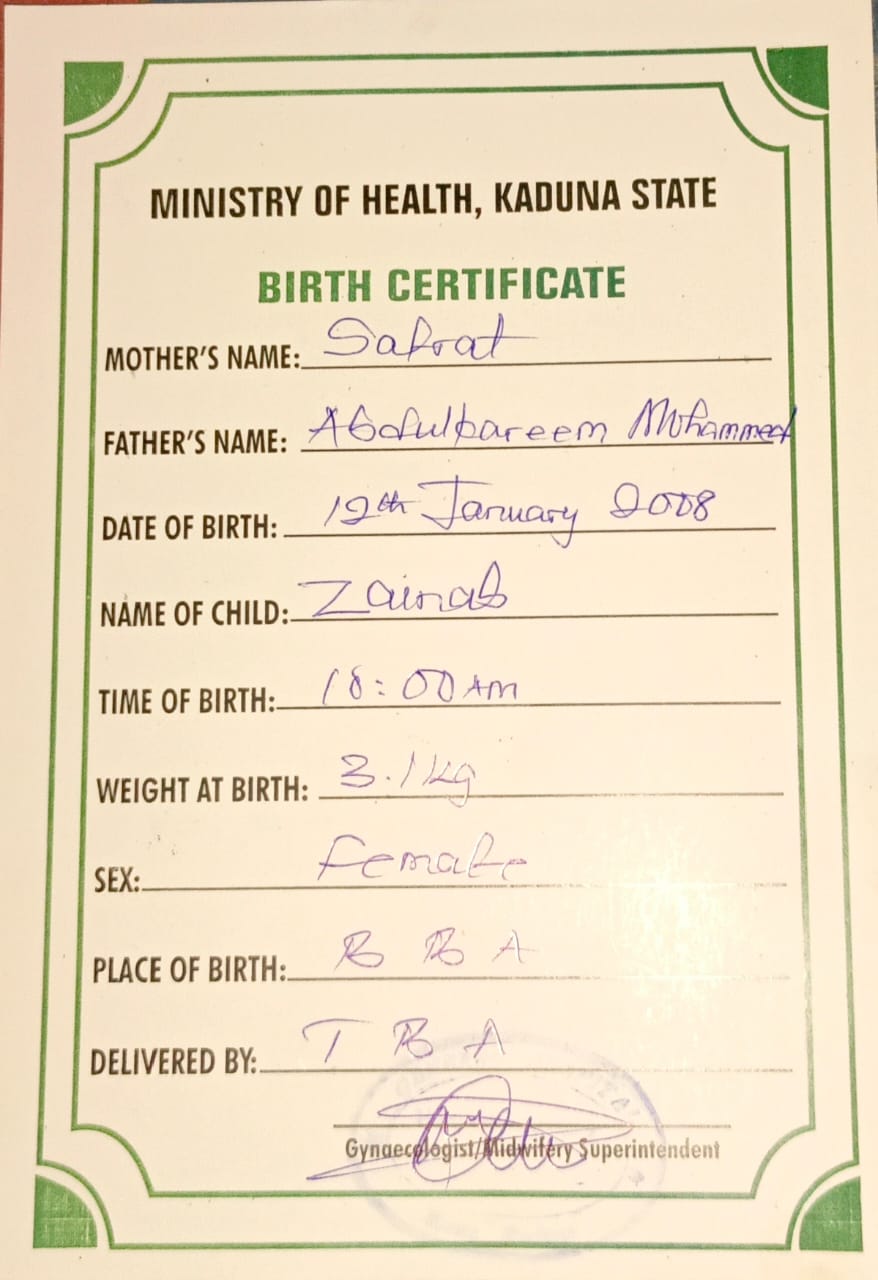 MINISTRY OF HEALTH, KADUNA STATE
BIRTH CERTIFICATE
MOTHER'S NAME: Safrat
FATHER'S NAME: Abdulkareem Mohammed
DATE OF BIRTH: 12th January 2008
NAME OF CHILD: Zainab
TIME OF BIRTH: :00 AM
WEIGHT AT BIRTH: 3.1kg
SEX: Female
PLACE OF BIRTH: B B A
DELIVERED BY: T B A
Gynaecologist/Midwifery Superintendent